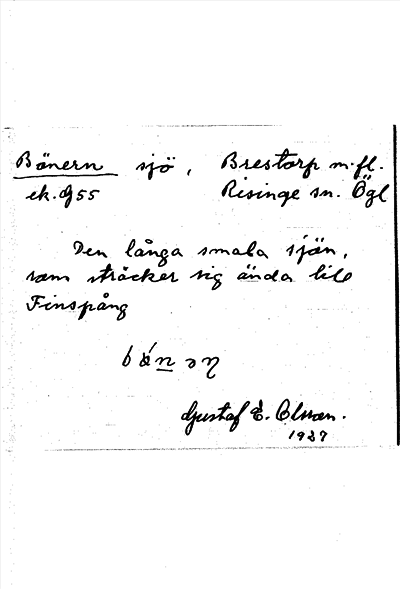 Bönern sjö, Brestorp m.fl.
ek. 9 55 Risinge sn. Ögl
Den långa smala sjön,
som sträcker sig ända till
Finspång
Gustaf E. Olsson.
1937